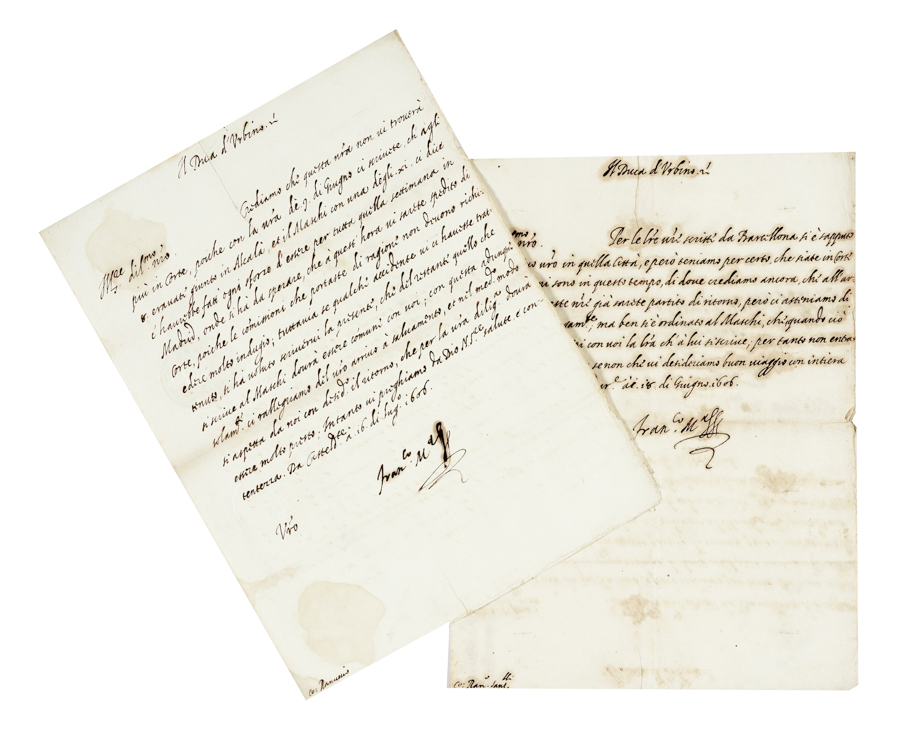 Il Duca d'Urbino.
Mag.ce dil.mo nro
Crediamo che questa nra non vi troverà
più in Corte, poiche con la vra de 9. di Giugno ci scrivete ch' agli
8. eravate giunto in Alcalà. et il Maschi con una degli xi. ci dice
c'havreste fatt' ogni sforzo d'essere per tutta quella settimana in
Madrid, onde si hà da sperare, che à quest' hora vi sarete spedito di
Corte, poiche le comissioni che portaste di ragione non devono richi-
edere molto indugio; tuttavia se qualche accidente vi ci havesse trat-
tenuto, si ha voluto scrivervi la presente, che del restante quello che
si scrive al Maschi dovrà essere comune con voi; con questa adunque
solam.te ci ralleghiamo del vro arrivo à salvamento, et nel med.mo modo
si aspetta da noi con desid.o il ritorno, che per la vra dilig.a dovrà
essere molto presto. Intanto vi preghiamo da Dio N.S.re salute e con-
tentezza. Da Casteldte à 16. di Lug.o 1606.
Fran.co M.a
Vro
Co: Ranuccio
Il Duca d'Urbino.
Per le lre vre scritte da Barcellona si è sapputo
vro in quella Città, e però teniamo per certo, che siate in Corte
vi sono in questo tempo, di dove crediamo ancora, che all' ar-
vre già sarete partito di ritorno, però ci asteniamo di
ma ben si è ordinato al Maschi, che quando ciò
con voi la lra ch' à lui si scrive; per tanto non entra
se non che vi desideriamo buon viaggio con intiera
18. di Giugno. 1606.
Fran.co M.a
Co: Ran.o